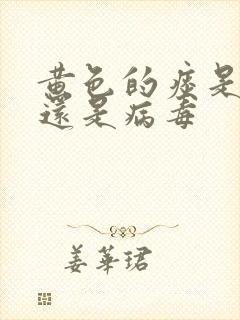 黄色的痰是
還是病毒
姜華珺